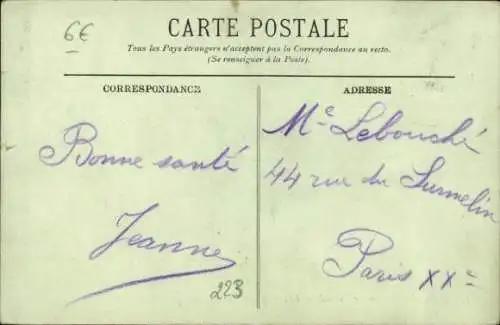 6€
CARTE POSTALE
Tous les Pays étrangers n'acceptent pas la Correspondance au recto.
(Se renseigner à la Poste).
CORRESPONDANCE
Bonne santé
Jeanne
223
ADRESSE
Me Lebouché
44 rue du Surmelin
Paris XXe